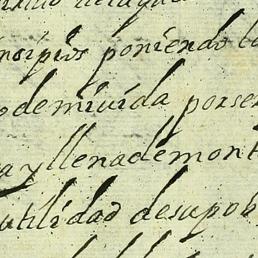 insipios poniendo la
o demivida porser
a yllenademont
utilidad desupob